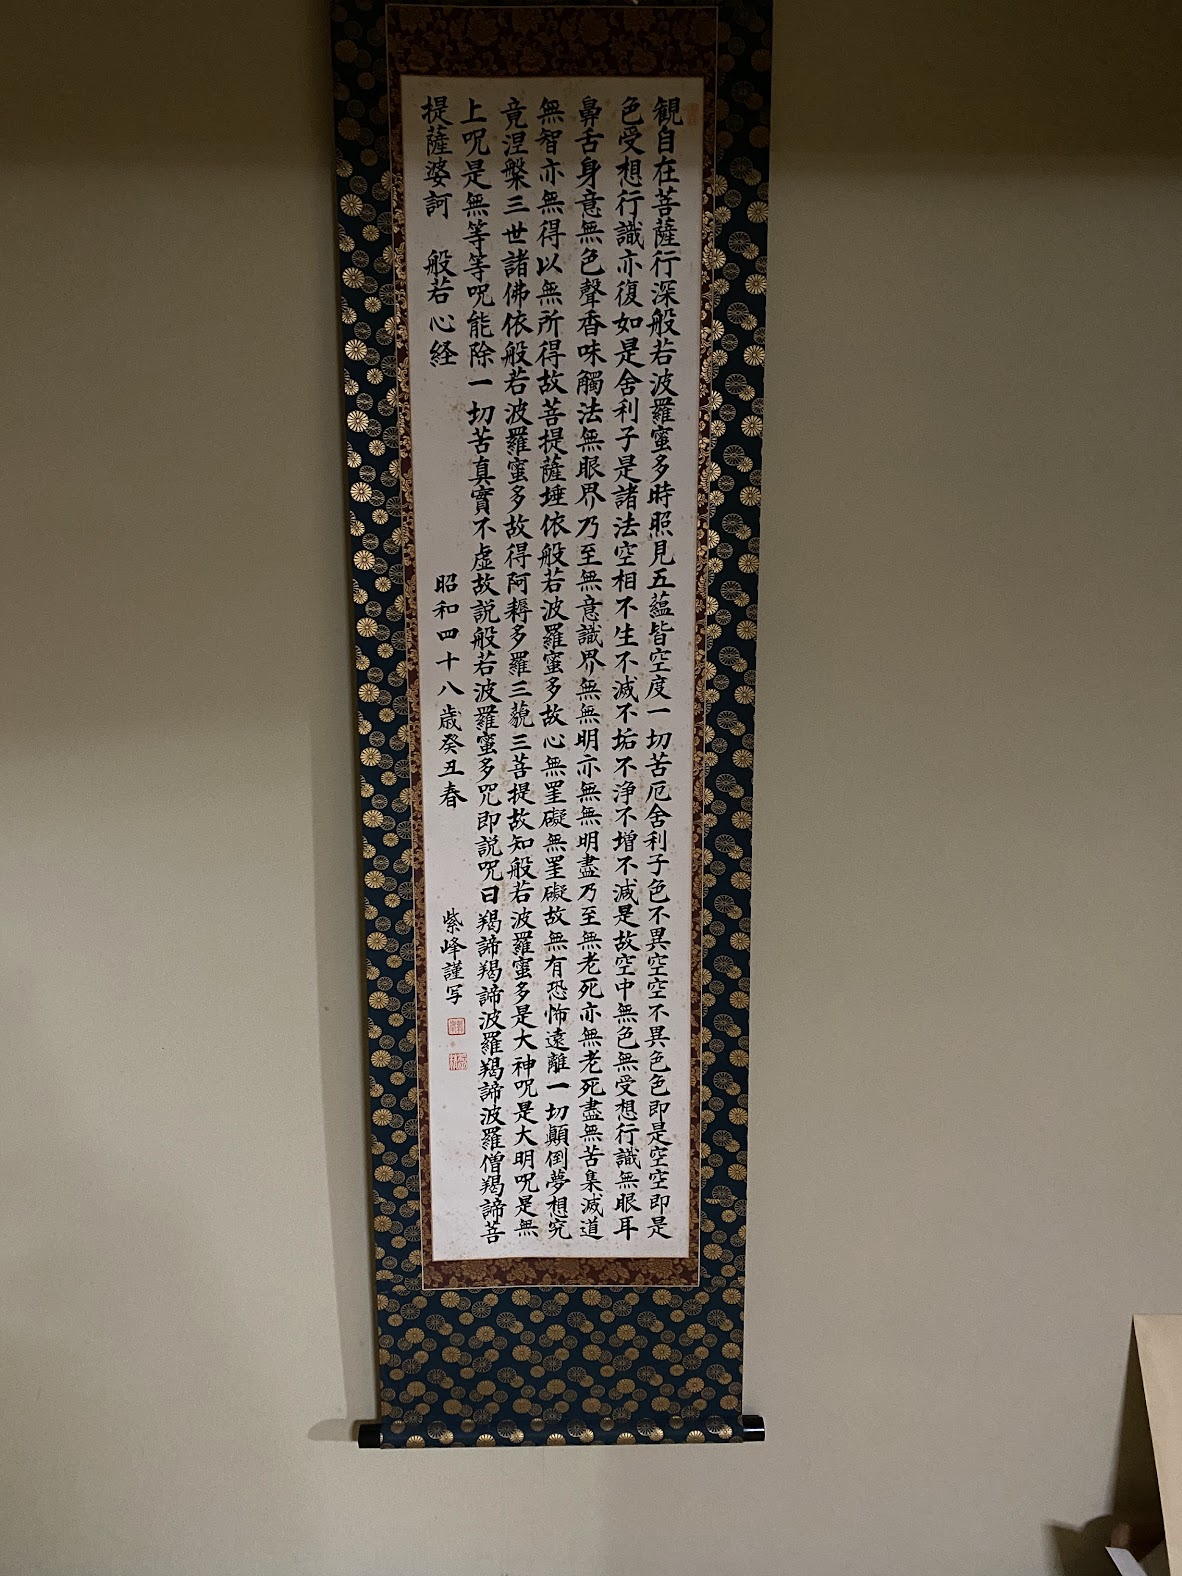 観自在菩薩行深般若波羅蜜多時照見五蘊皆空度一切苦厄舍利子色不異空空不異色色即是空空即是
色受想行識亦復如是舍利子是諸法空相不生不滅不垢不浄不増不減是故空中無色無受想行識無眼耳
鼻舌身意無色聲香味觸法無眼界乃至無意識界無無明亦無無明盡乃至無老死亦無老死盡無苦集滅道
無智亦無得以無所得故菩提薩埵依般若波羅蜜多故心無罣礙無罣礙故無有恐怖遠離一切顛倒夢想究
竟涅槃三世諸佛依般若波羅蜜多故得阿耨多羅三藐三菩提故知般若波羅蜜多是大神呪是大明呪是無
上呪是無等等呪能除一切苦真實不虚故説般若波羅蜜多咒即説呪曰羯諦羯諦波羅羯諦波羅僧羯諦菩
提薩婆訶 般若心経
昭和四十八歳癸丑春
紫峰謹写